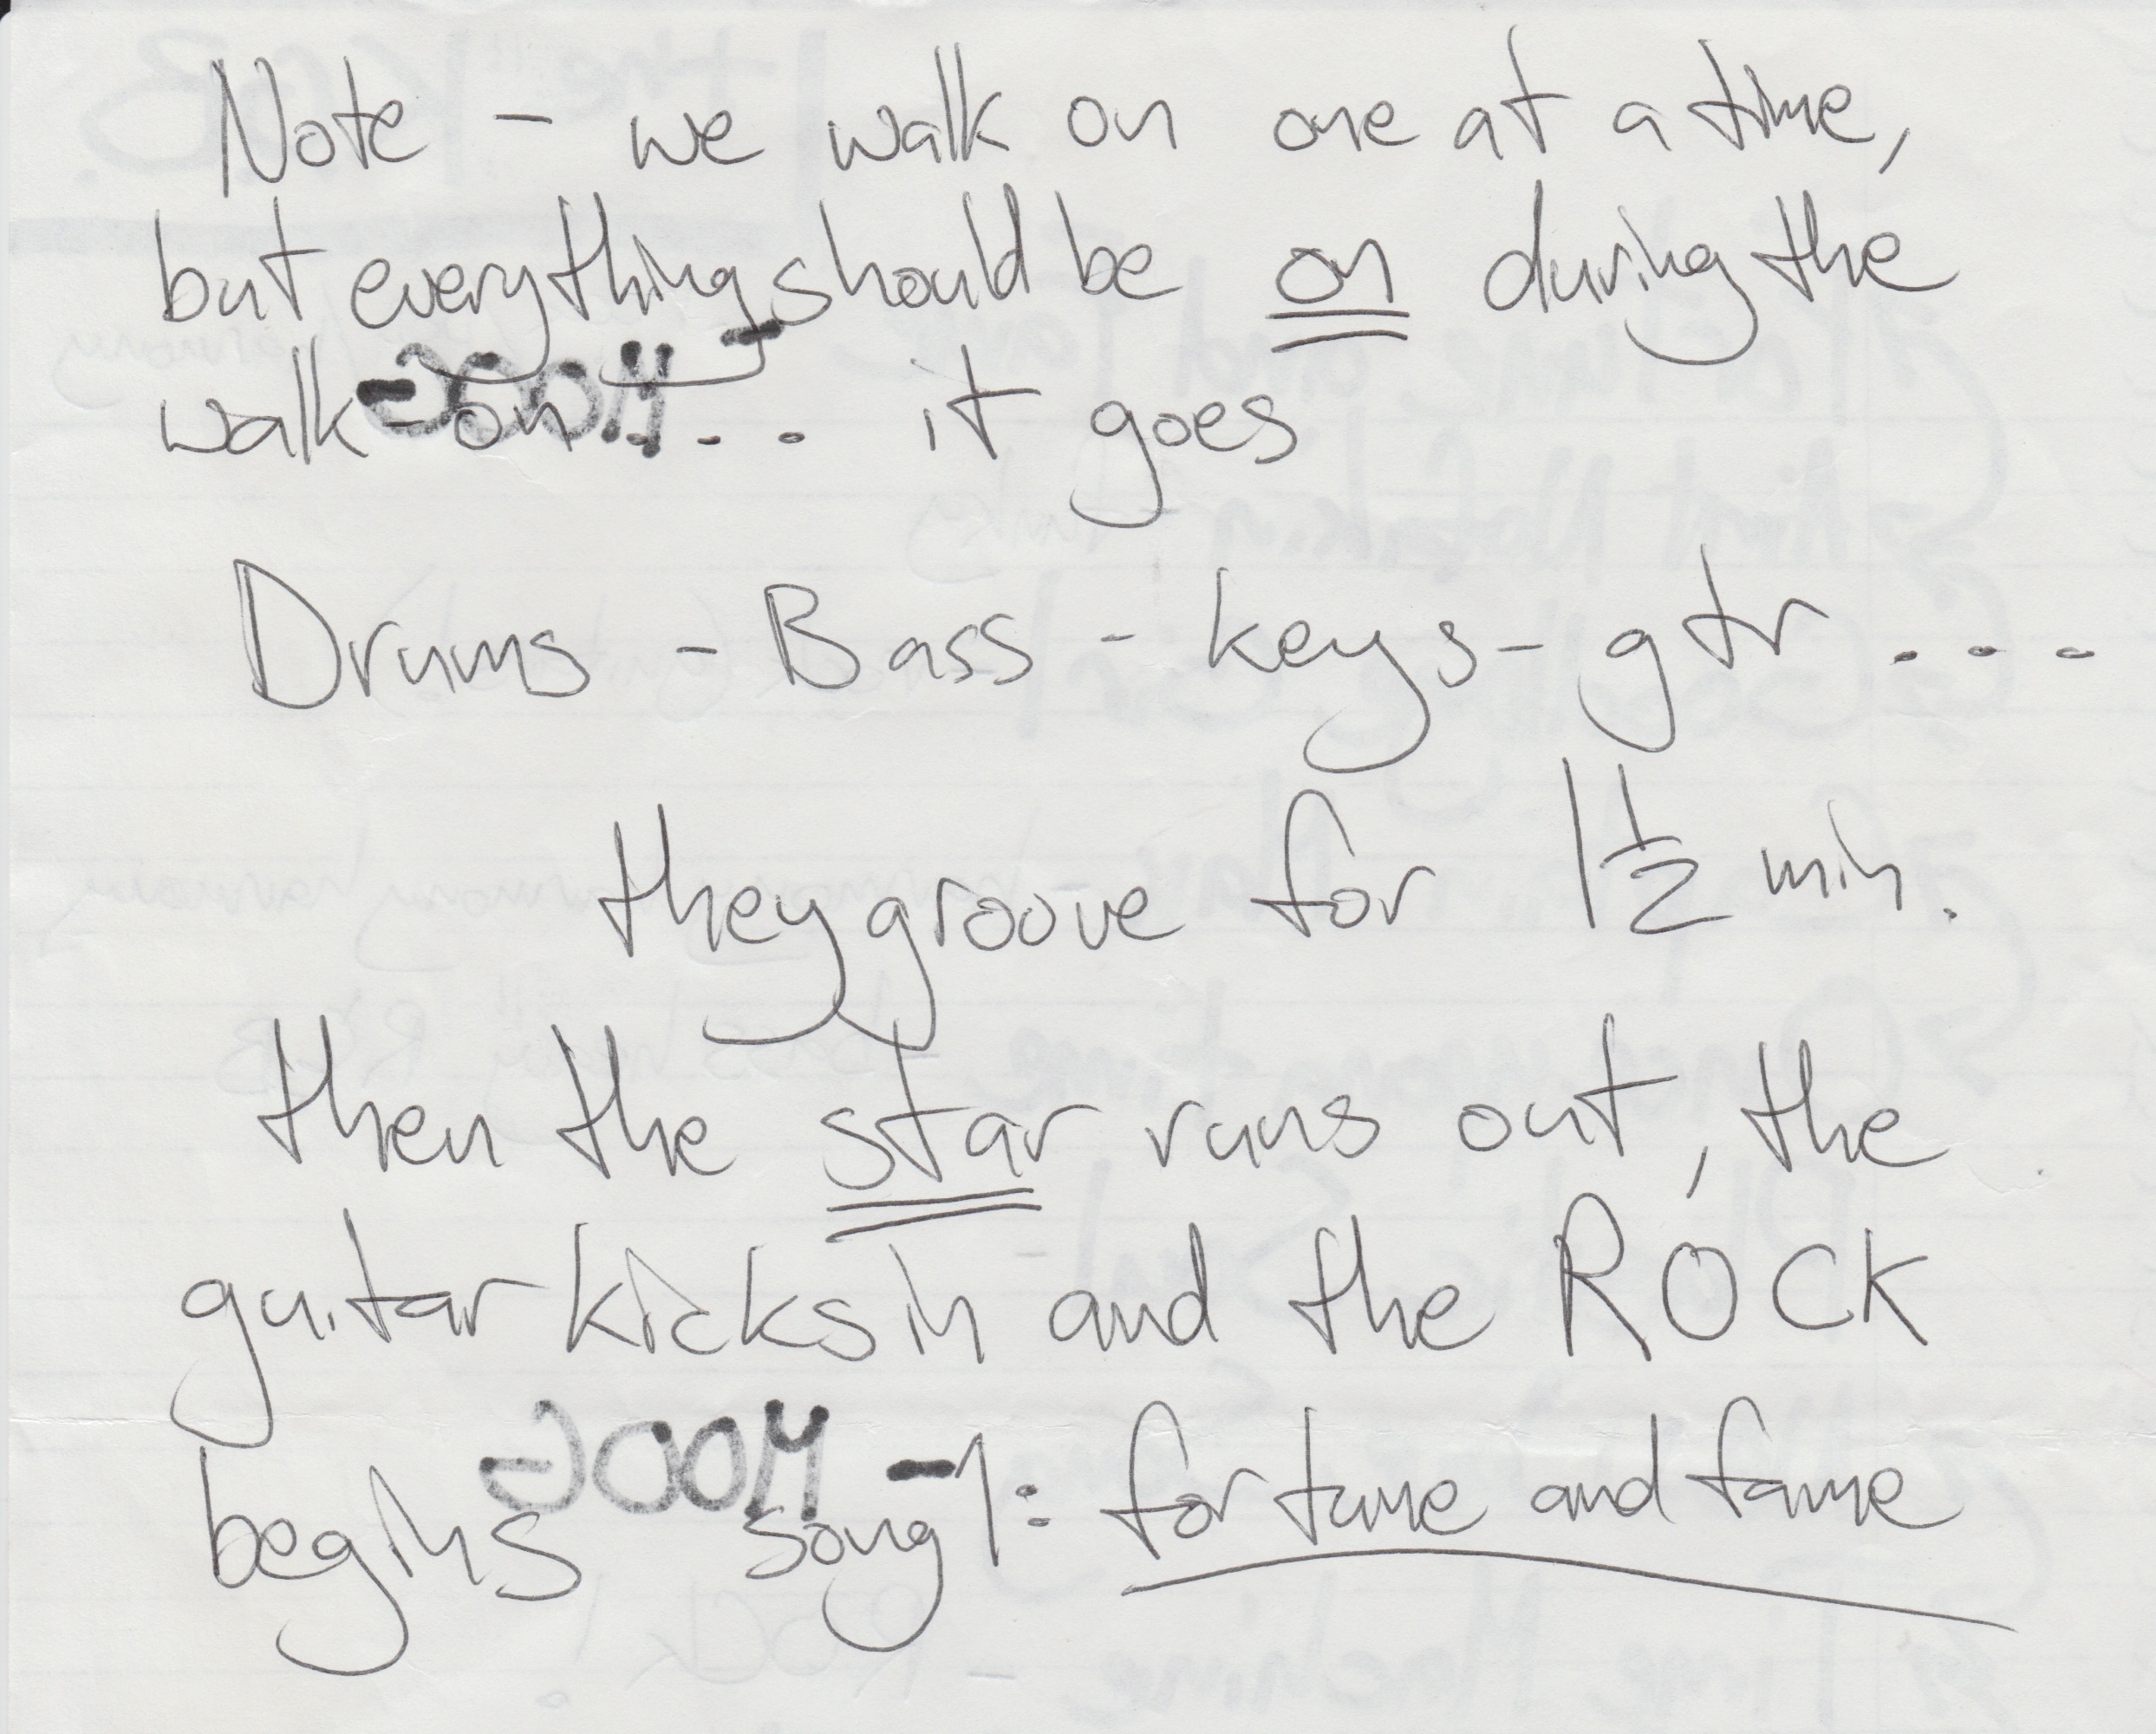 Note - we walk on one at a time,
but everything should be on during the
walk-on ... it goes
Drums - Bass - keys - gtr ....
they groove for 1 1/2 min.
then the star runs out, the
guitar kicks in and the ROCK
begins song 1: fortune and fame